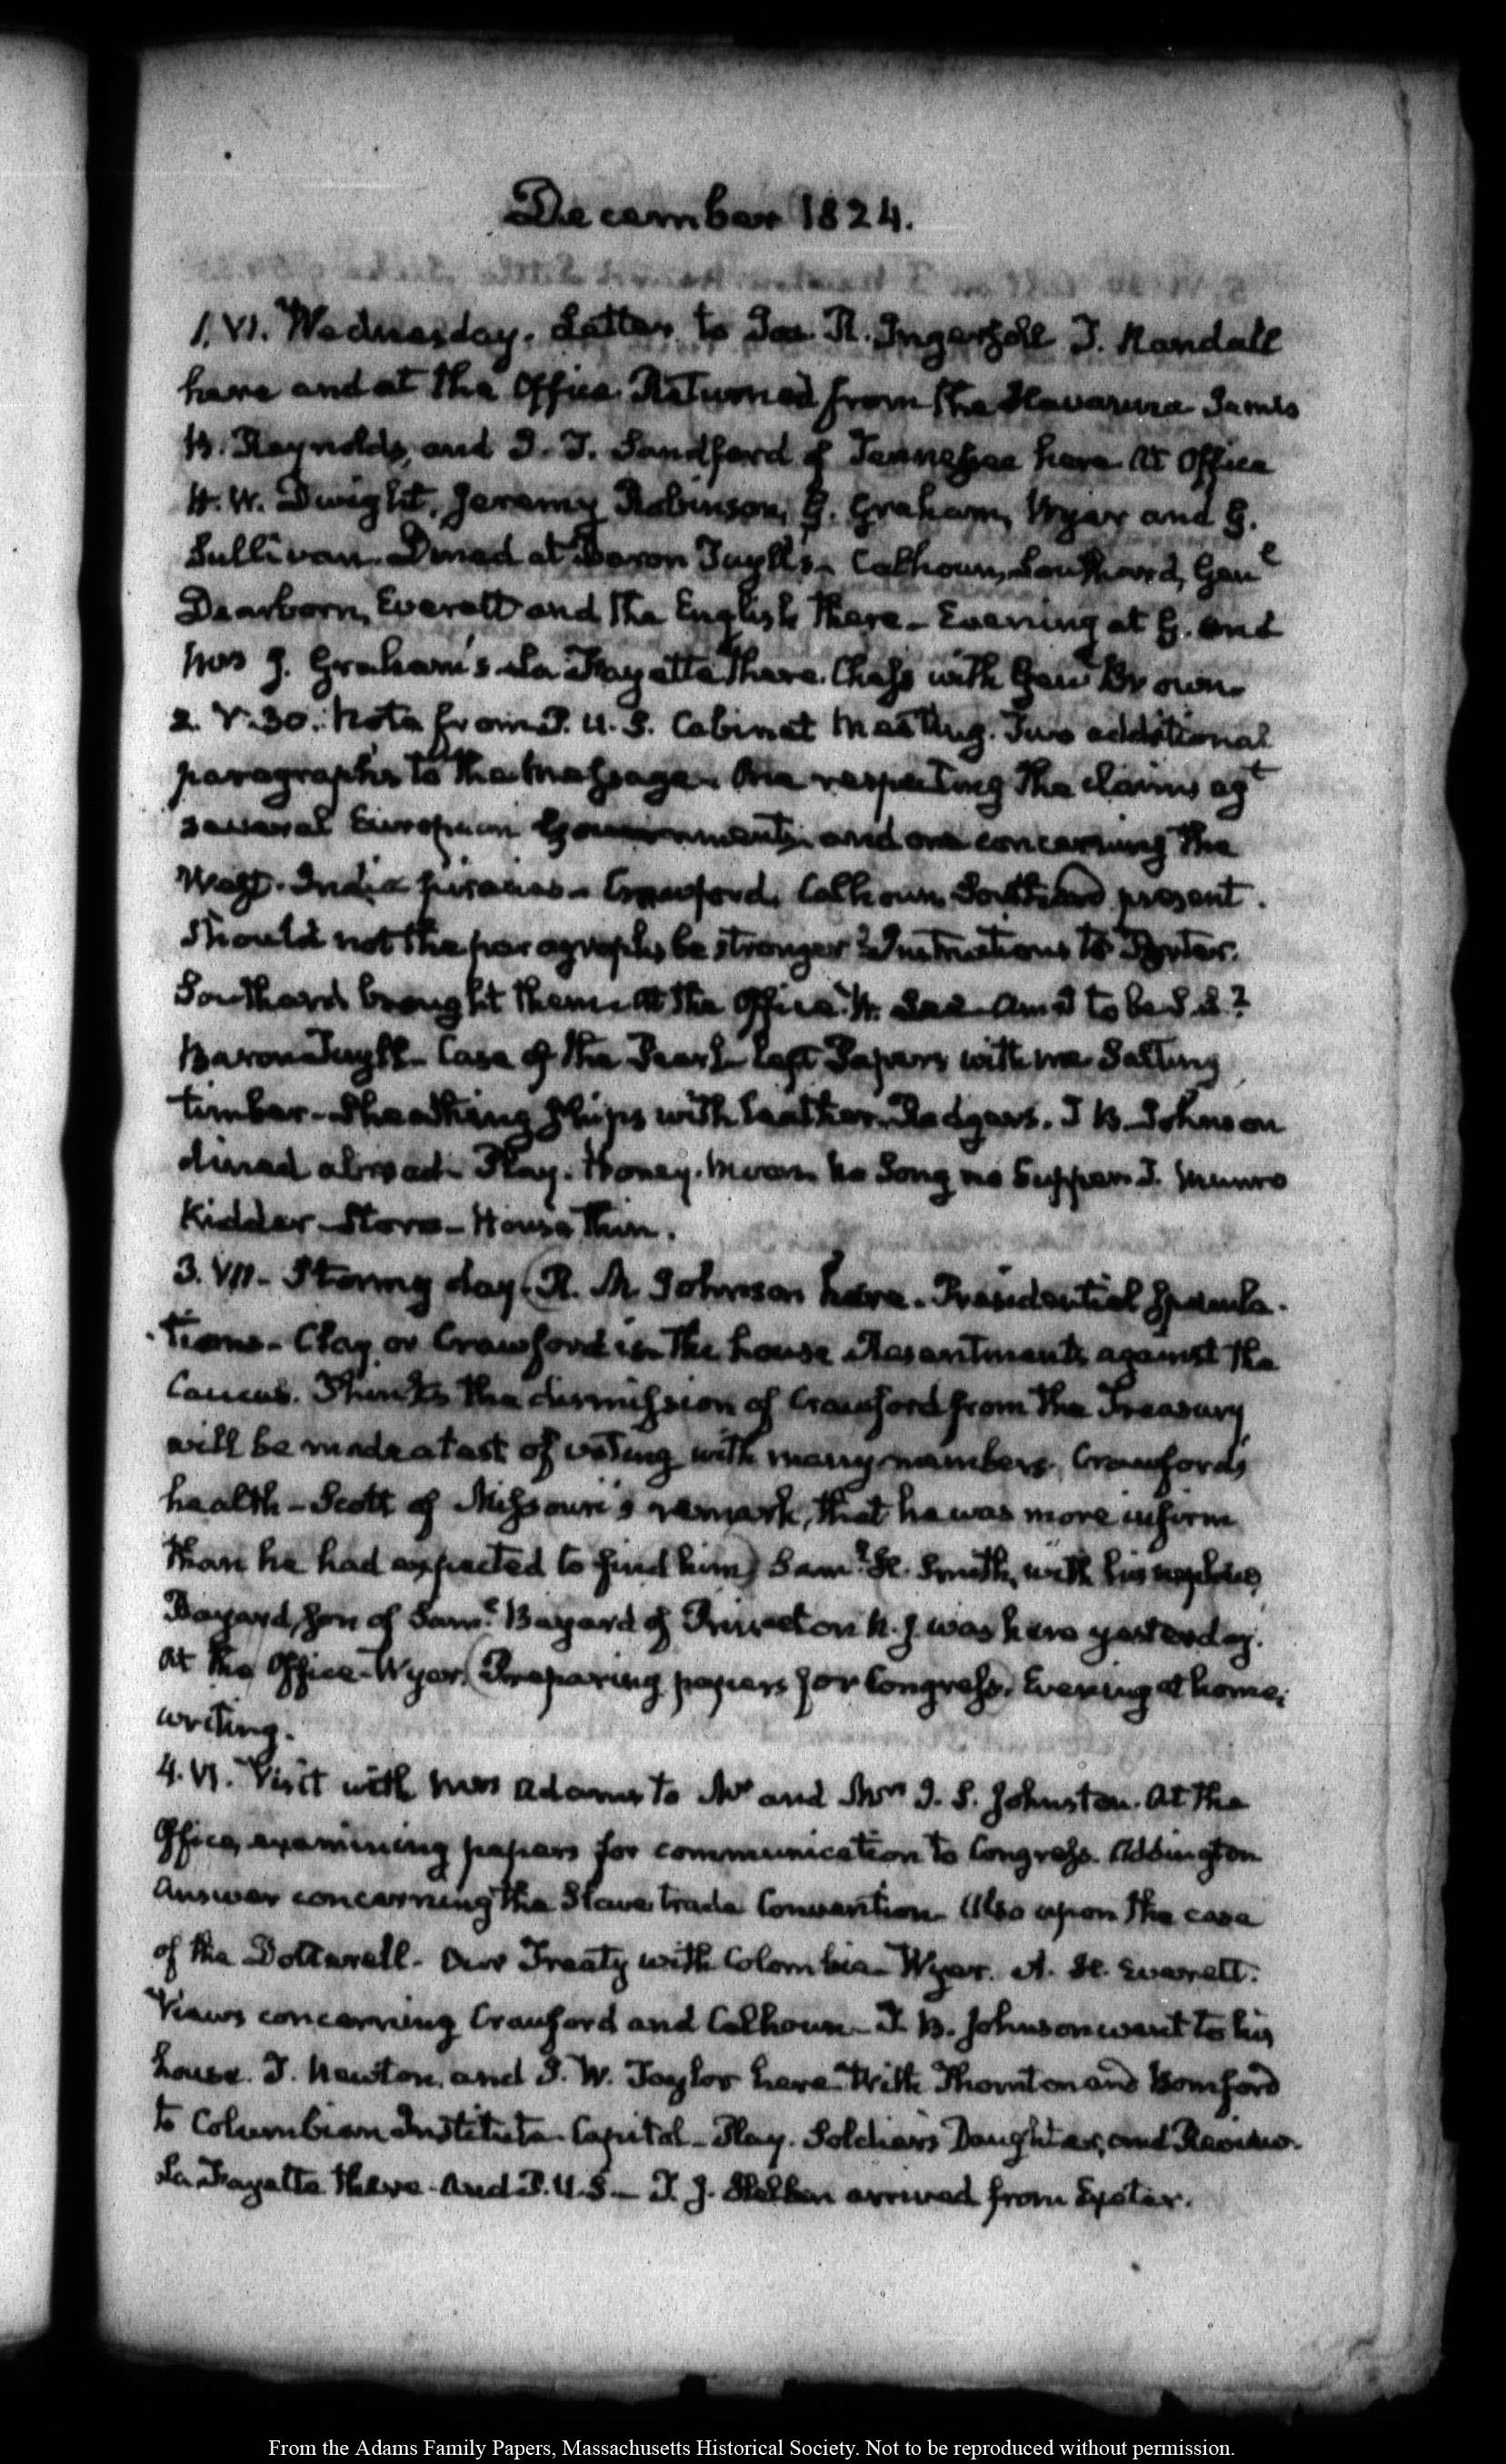 December 1824.
1. VI. Wednesday. Letter to Jos. R. Ingersoll T. Randall
here and at the Office Returned from the Havanna James
B. Reynolds, and J. T. Sandford of Tennessee here. At Office
H. W. Dwight, Jeremy Robinson, G. Graham, Wyer and G.
Sullivan. Dined at Baron Tuyll's. Calhoun, Southard, Genl
Dearborn, Everett and the English there. Evening at G. and
Mrs J. Graham's La Fayette there. Chess with Genl Brown.
2. V.30. Note from P. U. S. Cabinet Meeting. Two additional
paragraphs to the message. One respecting the claims agt
several European Governments and one concerning the
West-India piracies. Crawford, Calhoun, Southard present.
Should not the paragraphs be stronger? Instructions to Porter.
Southard brought them at the Office. H. Lee. Am I to be S. S.?
Baron Tuyll. Case of the Pearl left Papers with me Salting
timber. Sheathing ships with leather. Rodgers. T B. Johnson
dined abroad. Play. Honey-Moon. No Song no Supper. J. Munro
Kidder. House thin.
3. VII. Stormy day. (R. M. Johnson here. Presidential specula-
tions. Clay or Crawford in the house Resentments against the
Caucus. Thinks the dismission of Crawford from the Treasury
will be made a test of voting with many members. Crawford's
health. Scott of Missouri's remark, that he was more infirm
than he had expected to find him) Saml H. Smith, with his nephew
Bayard, son of Saml Bayard of Princeton N. J. was here yesterday.
At the Office. Wyer. (Preparing papers for Congress). Evening at home,
writing.
4. VI. Visit with Mrs Adams to Mr and Mrs J. S. Johnston. At the
Office, examining papers for communication to Congress. Addington
Answer concerning the Slave trade Convention. Also upon the case
of the Dotterell. Our Treaty with Colombia. Wyer. A. H. Everett.
Views concerning Crawford and Calhoun. T. B. Johnson went to his
house. T. Newton, and J. W. Taylor here. With Thornton and Bomford
to Columbian Institute. Capitol. Play. Soldier's Daughter, and Review.
La Fayette there. And P. U. S. T. J. Hellen arrived from Exeter.
From the Adams Family Papers, Massachusetts Historical Society. Not to be reproduced without permission.